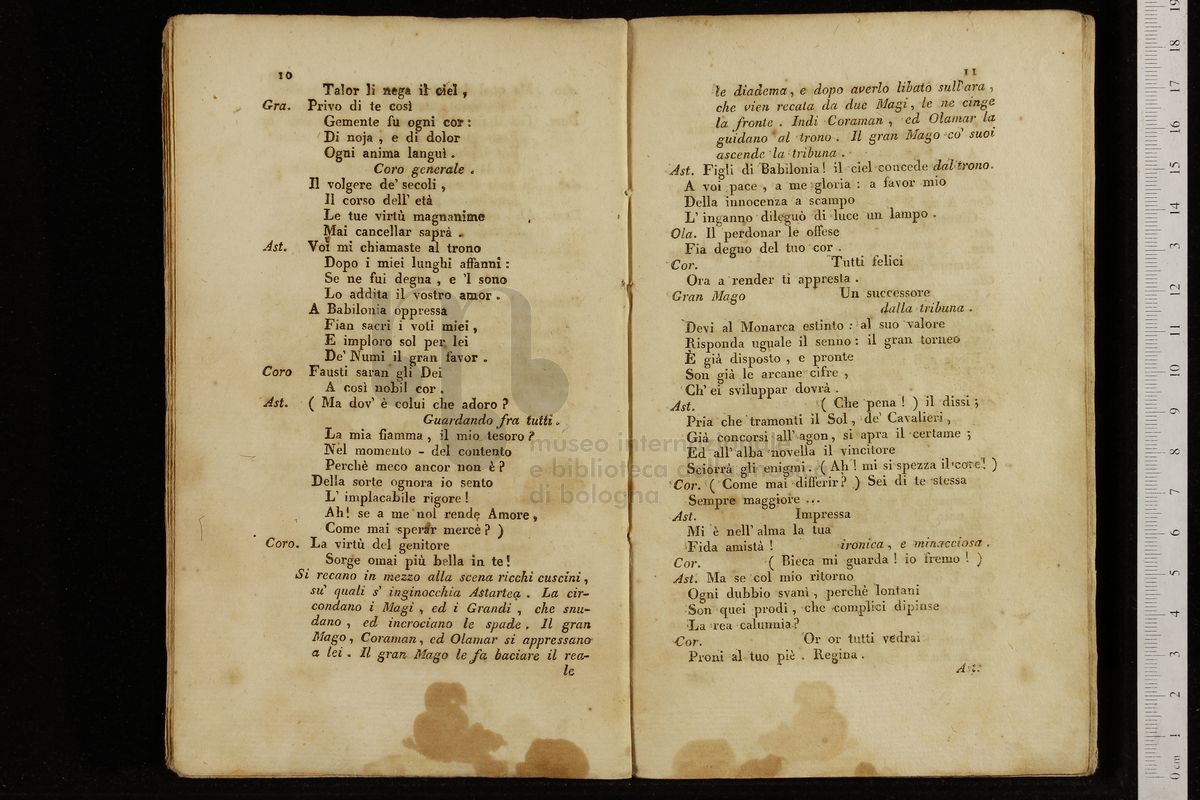 10
Talor li nega il ciel,
Gra. Privo di te così
Gemente fu ogni cor:
Di noja, e di dolor
Ogni anima languì.
Coro generale.
Il volgere de' secoli,
Il corso dell' età
Le tue virtù magnanime
Mai cancellar saprà.
Ast. Voi mi chiamaste al trono
Dopo i miei lunghi affanni:
Se ne fui degna, e 'l sono
Lo addita il vostro amor.
A Babilonia oppressa
Fian sacri i voti miei,
E imploro sol per lei
De' Numi il gran favor.
Coro Fausti saran gli Dei
A così nobil cor.
Ast. ( Ma dov' è colui che adoro?
Guardando fra tutti.
La mia fiamma, il mio tesoro?
Nel momento - del contento
Perchè meco ancor non è?
Della sorte ognora io sento
L' implacabile rigore!
Ah! se a me nol rende Amore,
Come mai sperar mercè? )
Coro. La virtù del genitore
Sorge omai più bella in te!
Si recano in mezzo alla scena ricchi cuscini,
su' quali s' inginocchia Astartea. La cir-
condano i Magi, ed i Grandi, che snu-
dano, ed incrociano le spade. Il gran
Mago, Coraman, ed Olamar si appressano
a lei. Il gran Mago le fa baciare il rea-
le
11
le diadema, e dopo averlo libato sull'ara,
che vien recata da due Magi, le ne cinge
la fronte. Indi Coraman, ed Olamar la
guidano al trono. Il gran Mago co' suoi
ascende la tribuna.
Ast. Figli di Babilonia! il ciel concede dal trono.
A voi pace, a me gloria: a favor mio
Della innocenza a scampo
L' inganno dileguò di luce un lampo.
Ola. Il perdonar le offese
Fia degno del tuo cor.
Cor. Tutti felici
Ora a render ti appresta.
Gran Mago Un successore
dalla tribuna.
Devi al Monarca estinto: al suo valore
Risponda uguale il senno: il gran torneo
È già disposto, e pronte
Son già le arcane cifre,
Ch' ei sviluppar dovrà.
Ast. ( Che pena! ) il dissi;
Pria che tramonti il Sol, de' Cavalieri,
Già concorsi all' agon, si apra il certame;
Ed all' alba novella il vincitore
Sciorrà gli enigmi. ( Ah! mi si spezza il core! )
Cor. ( Come mai differir? ) Sei di te stessa
Sempre maggiore ...
Ast. Impressa
Mi è nell' alma la tua
Fida amistà! ironica, e minacciosa.
Cor. ( Bieca mi guarda! io fremo! )
Ast. Ma se col mio ritorno
Ogni dubbio svanì, perchè lontani
Son quei prodi, che complici dipinse
La rea calunnia?
Cor. Or or tutti vedrai
Proni al tuo piè. Regina.
Ast.
museo internazionale
e biblioteca della musica
di bologna